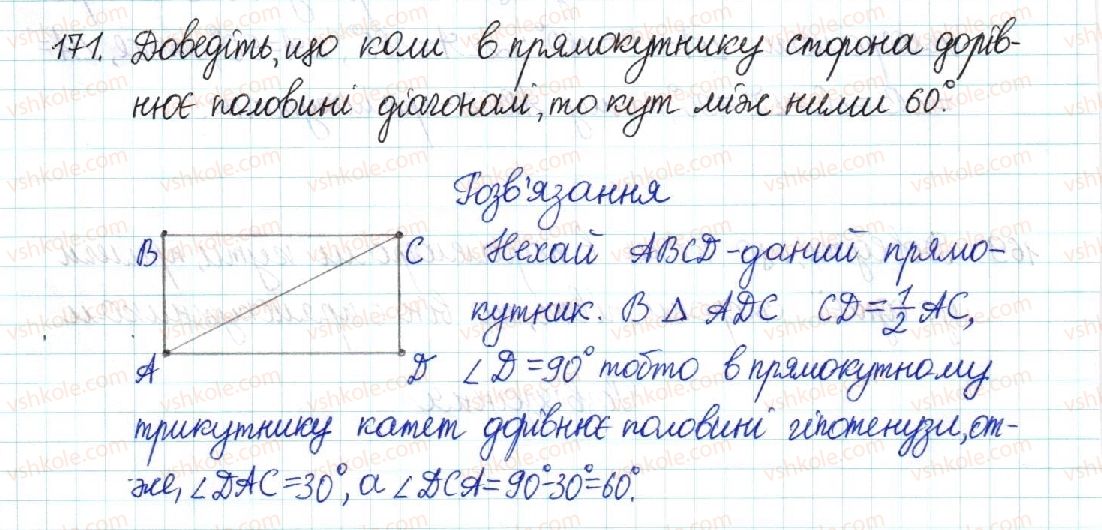 171. Доведіть, що коли в прямокутнику сторона дорів-
нює половині діагоналі, то кут між ними 60°.
Розв'язання
B C Нехай ABCD - даний прямо-
кутник. В Δ ADC CD = 1/2 AC,
A D ∠D = 90° тобто в прямокутному
трикутнику катет дорівнює половині гіпотенузи, от-
же, ∠DAC = 30°, а ∠DCA = 90° - 30° = 60°.
vshkole.com